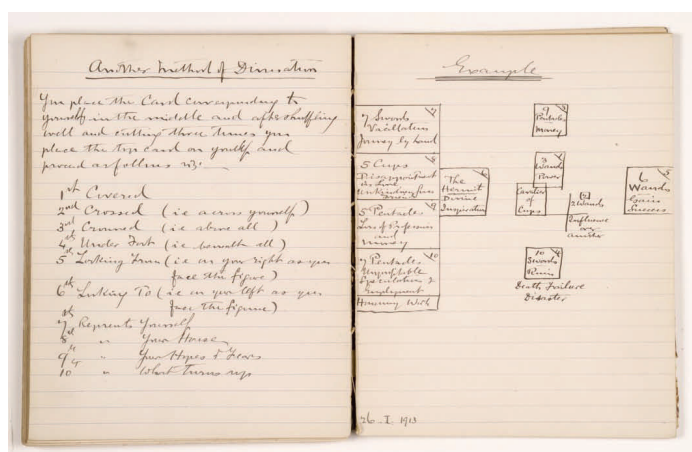 Another method of Divination
You place the Card corresponding to
yourself in the middle and after shuffling
well and cutting three times you
place the top card on yourself and
proceed as follows viz:
1st Covered
2nd Crossed (i.e. across yourself)
3rd Crowned (i.e. above all)
4th Under Foot (i.e. beneath all)
5th Looking From (i.e. on your right as you
face the figure)
6th Looking To (i.e. on your left as you
face the figure)
7th Represents Yourself
8th " Your House
9th " Your Hopes & Fears
10 " What turns up
Example
7 Swords 7
Vacillation
Journey by Land
5 Cups 8
Disappointment
in Love
Unkindness from
5 Pentacles 9
Loss of Profession
and
money
7 Pentacles 10
Unprofitable
Speculation &
Employment
The
Hermit
Divine
Inspiration
9
Pentacles
money
3
Wands
Power
Cavalier
of
Cups
2 Wands
Influence
over
another
10
Swords
Ruin
Death Failure
Disaster
6 5
Wands
Gain
Success
26. I. 1913